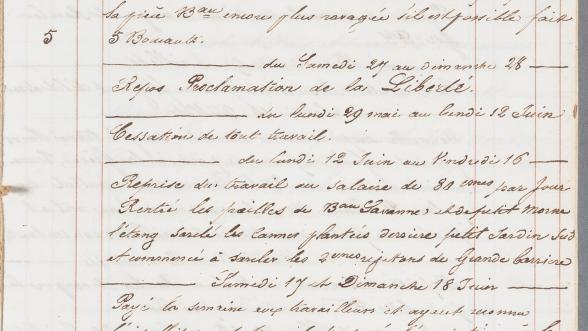 la pièce Bau encore plus ravagée s'il est possible fait
5 5 Boucauts.
du Samedi 27 au dimanche 28
Repos Proclamation de la Liberté.
du lundi 29 mai au lundi 12 Juin
Cessation de tout travail.
du lundi 12 Juin au Vendredi 16
Reprise du travail au salaire de 80 cmes par Jour
Rentré les pailles de Bau Savanne, et de petit morne
l'étang sarclé les Cannes plantées derrière petit Jardin Sud
et commencé à sarcler les 2emes rejetons de Grande Carrière
Samedi 17 et Dimanche 18 Juin
Payé la semaine aux travailleurs et ayant reconnu